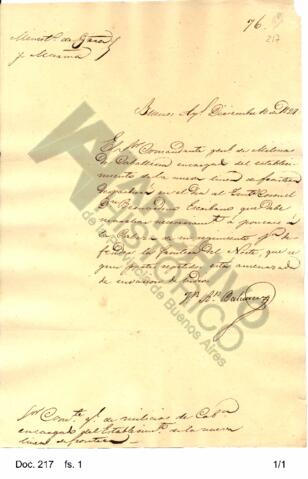 76
217
Minist.o de Guerra
y Marina
Buenos Ay.s Diciembre 10 de 1828
El S.or Comandante gral de Milicias
de Caballeria encargado del estableci-
miento de la nueva linea de frontera
despachará en el dia al Ten.te Coronel
D.n Bernardino Escribano que debe
marchar á ponerse
de su regimiento p.a de-
fender la frontera del Norte, que se-
gun partes repetidos está amenazada
de invasion de indios
J.n R. Balcarce
S.or Com.te g.l de milicias de Cab.a
encargado del Establecim.to de la nueva
linea de frontera
ARCHIVO
HISTORICO
de la Provincia de Buenos Aires
Doc. 217 fs. 1
1/1